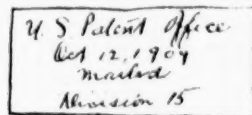 U. S. Patent Office
Oct 12, 1909
mailed
Division 15